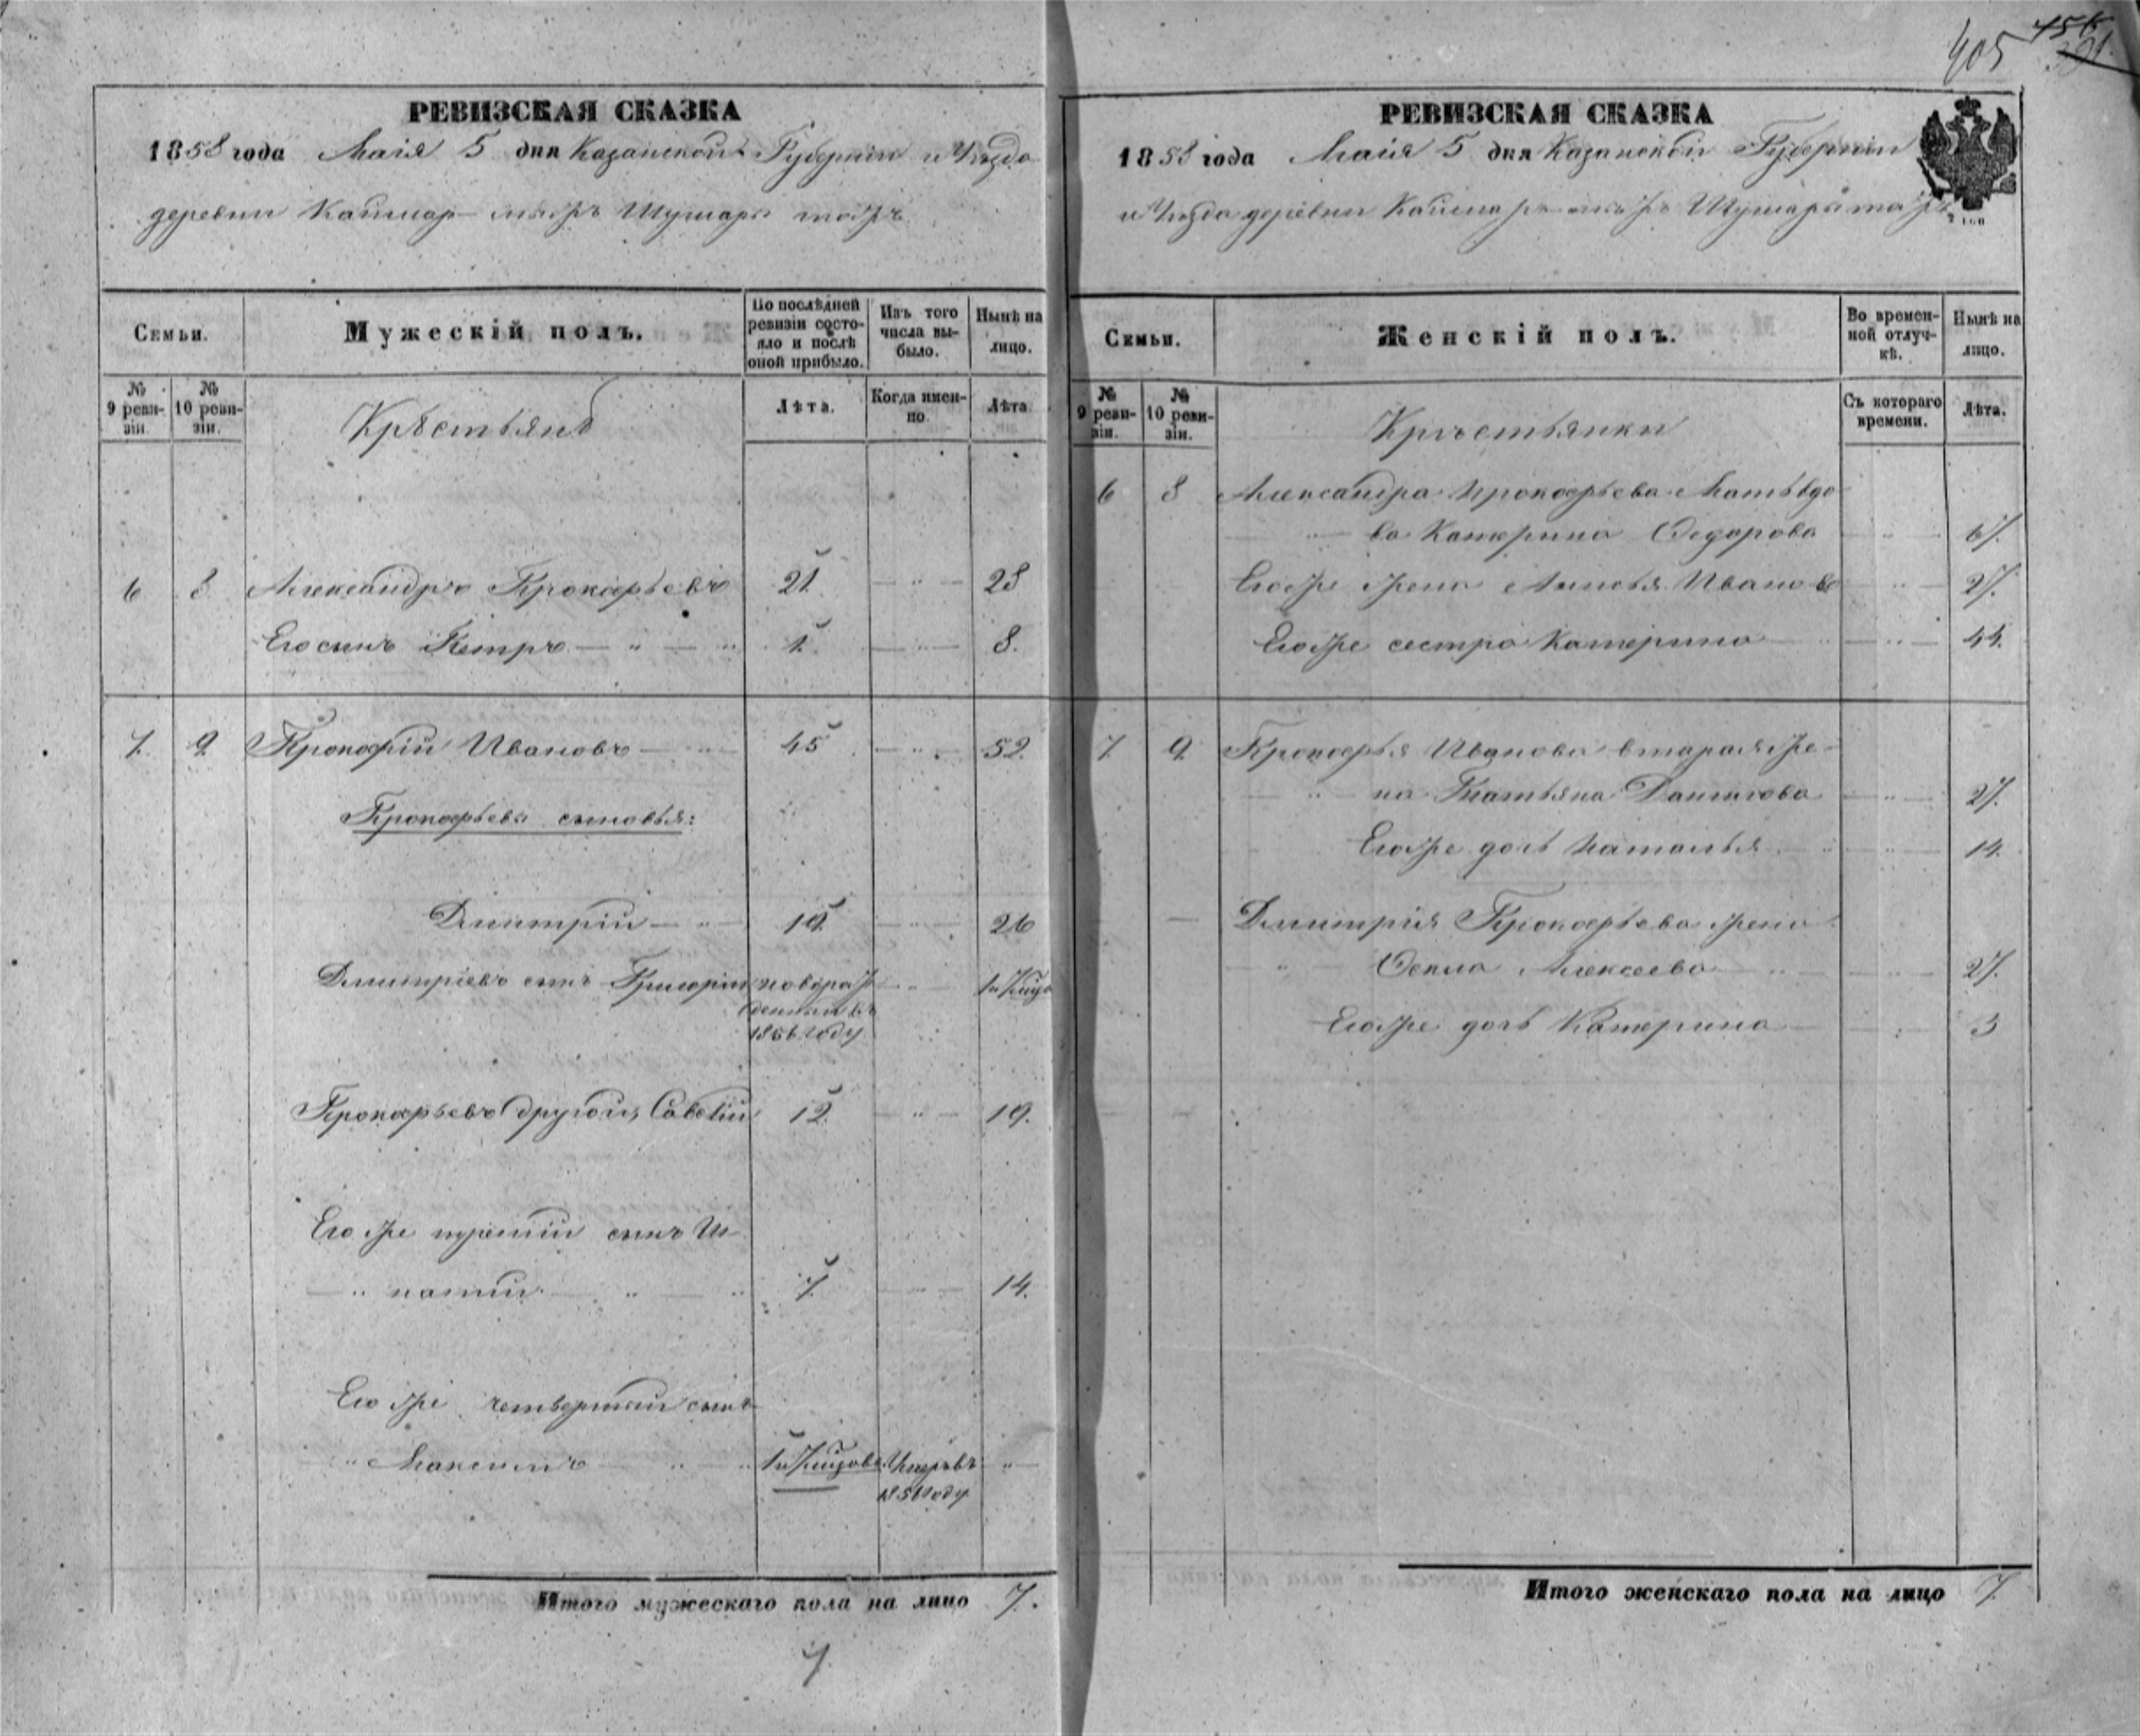 405 456
391.
РЕВИЗСКАЯ СКАЗКА
1858 года Маія 5 дня Казанской Губерніи и Уѣзда
деревни Каймар
Семьи.
Мужескій полъ.
По послѣдней ревизіи состояло и послѣ оной прибыло.
Изъ того числа выбыло.
Нынѣ на лицо.
№ 9 ревизіи.
№ 10 ревизіи.
Крестьянѣ
Лѣта.
Когда именно
Лѣта
6 8 Александръ Прокофьевъ 21 28
Его сынъ Петръ 1 8.
7. 9 Прокофій Ивановъ 45 52.
Прокофьевы сыновья:
Дмитрій 19 26
Дмитріевъ сынъ Григорій новорож
денный въ
1856 году
Прокофьевъ другой, Савелій 12. 19.
Его же третій сынъ Иг
натій 7. 14.
Его же четвертый сынъ
Максимъ Умеръ въ
году
Итого мужескаго пола на лицо 7.
7.
РЕВИЗСКАЯ СКАЗКА
1858 года Маія 5 дня Казанской Губерніи
и Уѣзда деревни
Семьи.
Женскій полъ.
Во временной отлучкѣ.
Нынѣ на лицо.
№ 9 ревизіи.
№ 10 ревизіи.
Крѣстьянки
Съ котораго времени.
Лѣта.
6 8 Александра Прокофьева
Катерина Федорова 67.
Его же жена Ивanova 27.
Его же сестра Катерина 44.
7. 9. Прокофья Иванова вторая же
на Татьяна Данилова 27.
Его же дочь Наталья 14.
Дмитрія Прокофьева жена
Алексеева 27.
Его же дочь Катерина 3
Итого женскаго пола на лицо 7.